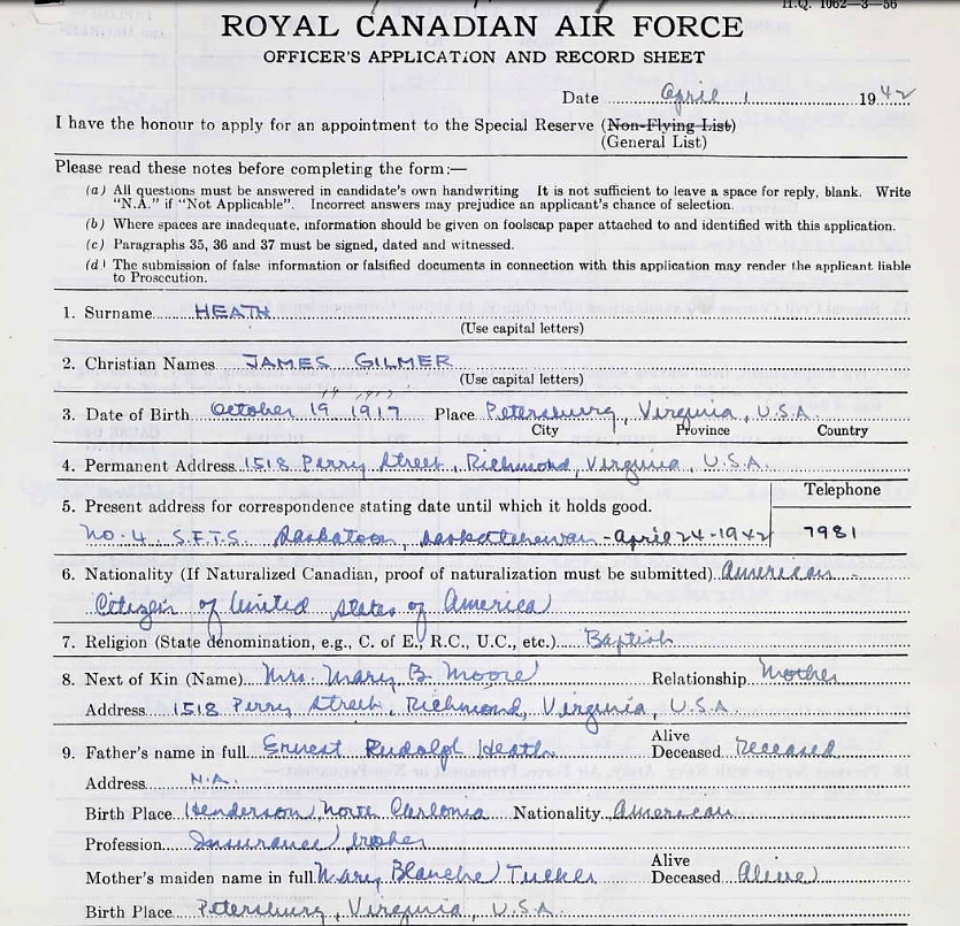 H.Q. 1062—3—56
ROYAL CANADIAN AIR FORCE
OFFICER'S APPLICATION AND RECORD SHEET
Date April 1 1942
I have the honour to apply for an appointment to the Special Reserve (Non-Flying List)
(General List)
Please read these notes before completing the form:—
(a) All questions must be answered in candidate's own handwriting It is not sufficient to leave a space for reply, blank. Write
"N.A." if "Not Applicable". Incorrect answers may prejudice an applicant's chance of selection.
(b) Where spaces are inadequate, information should be given on foolscap paper attached to and identified with this application.
(c) Paragraphs 35, 36 and 37 must be signed, dated and witnessed.
(d) The submission of false information or falsified documents in connection with this application may render the applicant liable
to Prosecution.
1. Surname HEATH
(Use capital letters)
2. Christian Names JAMES GILMER
(Use capital letters)
3. Date of Birth October 19 1917 Place Petersburg, Virginia, U.S.A.
City Province Country
4. Permanent Address 1518 Perry Street, Richmond, Virginia, U.S.A.
Telephone
5. Present address for correspondence stating date until which it holds good.
No. 4 S.F.T.S. Saskatoon, Saskatchewan - April 24 - 1942 7981
6. Nationality (If Naturalized Canadian, proof of naturalization must be submitted) American
Citizen of United States of America
7. Religion (State denomination, e.g., C. of E., R.C., U.C., etc.) Baptist
8. Next of Kin (Name) Mrs. Mary B. Moore Relationship Mother
Address 1518 Perry Street, Richmond, Virginia, U.S.A
9. Father's name in full Ernest Rudolph Heath Alive
Deceased Deceased
Address N.A.
Birth Place Henderson, North Carlonia Nationality American
Profession Insurance broker
Mother's maiden name in full Mary Blanche Tucker Alive
Deceased Alive
Birth Place Petersburg, Virginia, U.S.A.